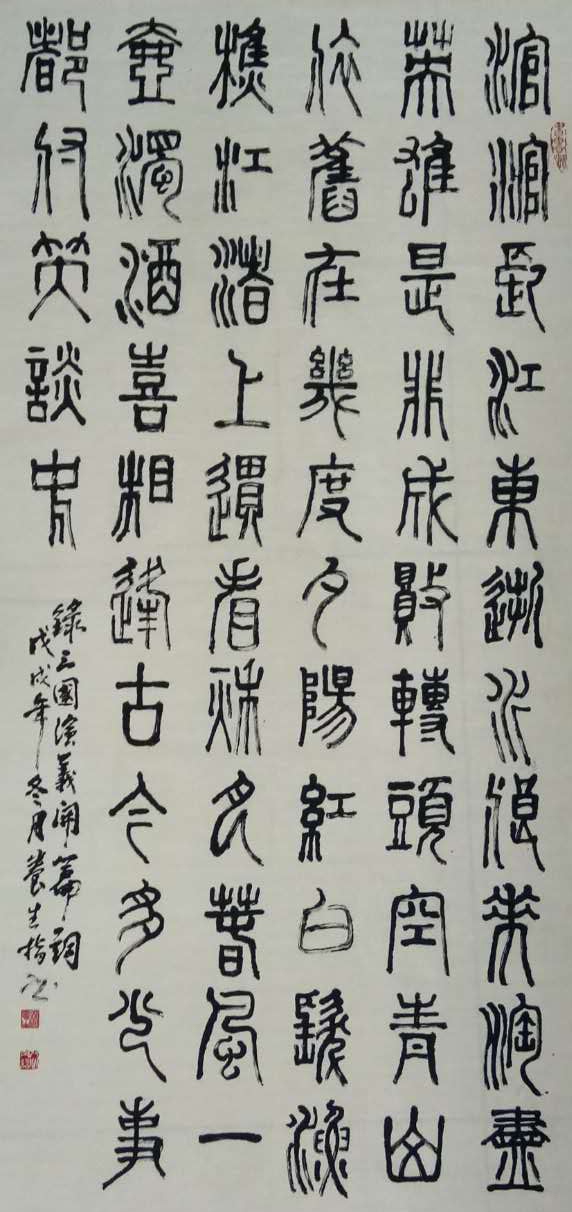 滾滾長江東逝水浪花淘盡
英雄是非成敗轉頭空青山
依舊在幾度夕陽紅白髮漁
樵江渚上慣看秋月春風一
壺濁酒喜相逢古今多少事
都付笑談中
錄三國演義開篇詞
戊戌年冬月養生